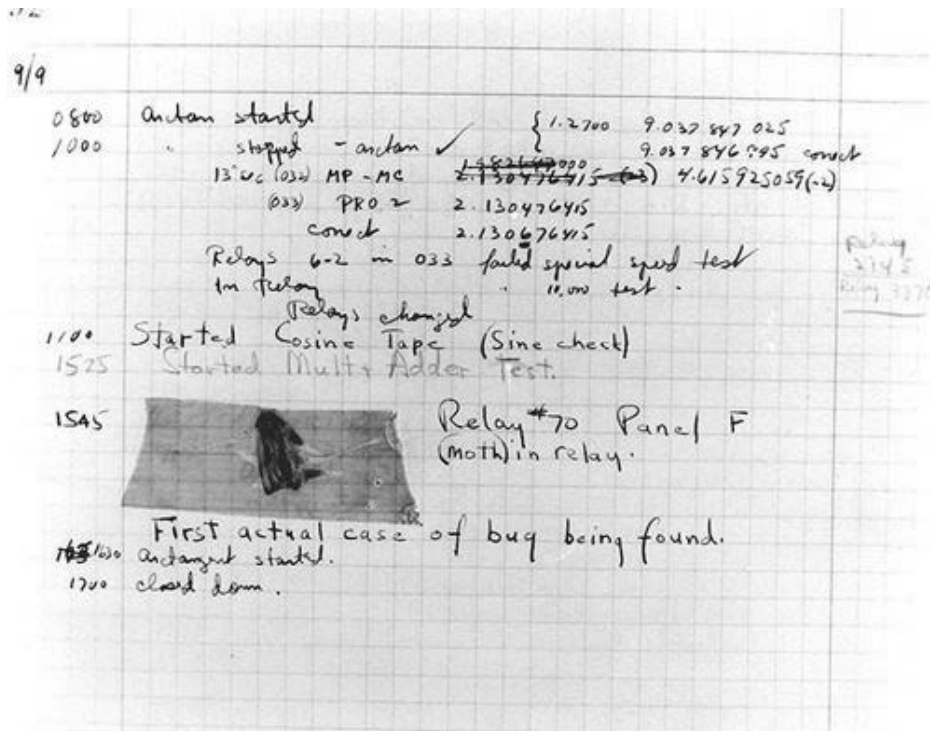 9/9
0800 arctan started { 1.2700 9.037 847 025
1000 " stopped - arctan ✓ 9.037 846 795 correct
13" uc (032) MP - MC 2.130476415 (-3) 4.615925059(-2)
(033) PRO 2 2.130476415
correct 2.130676415
Relays 6-2 in 033 failed special speed test
In relay " 10,000 test .
Relays changed
Relay
1100 Started Cosine Tape (Sine check)
1525 Started Mult+ Adder Test.
1545 Relay #70 Panel F
(moth) in relay.
First actual case of bug being found.
1630 arctangent started.
1700 closed down .